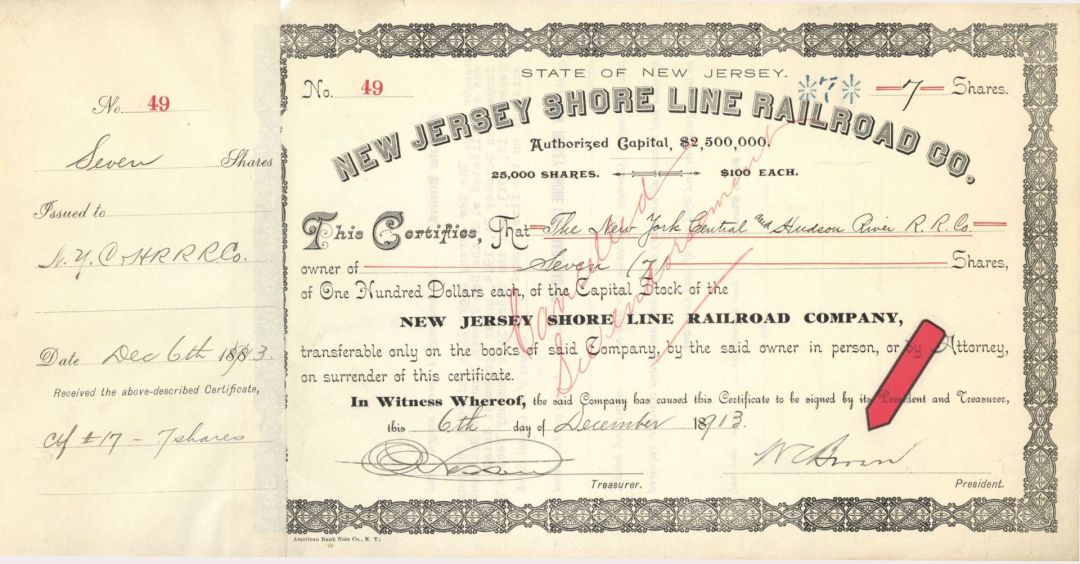 No. 49
Seven Shares
Issued to
N.Y.C & H R R R Co.
Date Dec 6th 1913.
Received the above-described Certificate,
Ctf #17 - 7 shares
STATE OF NEW JERSEY.
No. 49
*7*
7 Shares.
NEW JERSEY SHORE LINE RAILROAD CO.
Authorized Capital, $2,500,000.
25,000 SHARES. $100 EACH.
This Certifies, That The New York Central and Hudson River R.R. Co.
owner of Seven (7) Shares,
of One Hundred Dollars each, of the Capital Stock of the
NEW JERSEY SHORE LINE RAILROAD COMPANY,
transferable only on the books of said Company, by the said owner in person, or by Attorney,
on surrender of this certificate.
Cancelled
In Witness Whereof, the said Company has caused this Certificate to be signed by its President and Treasurer,
this 6th day of December 1913.
W C Brown
Treasurer. President.
American Bank Note Co., N. Y.